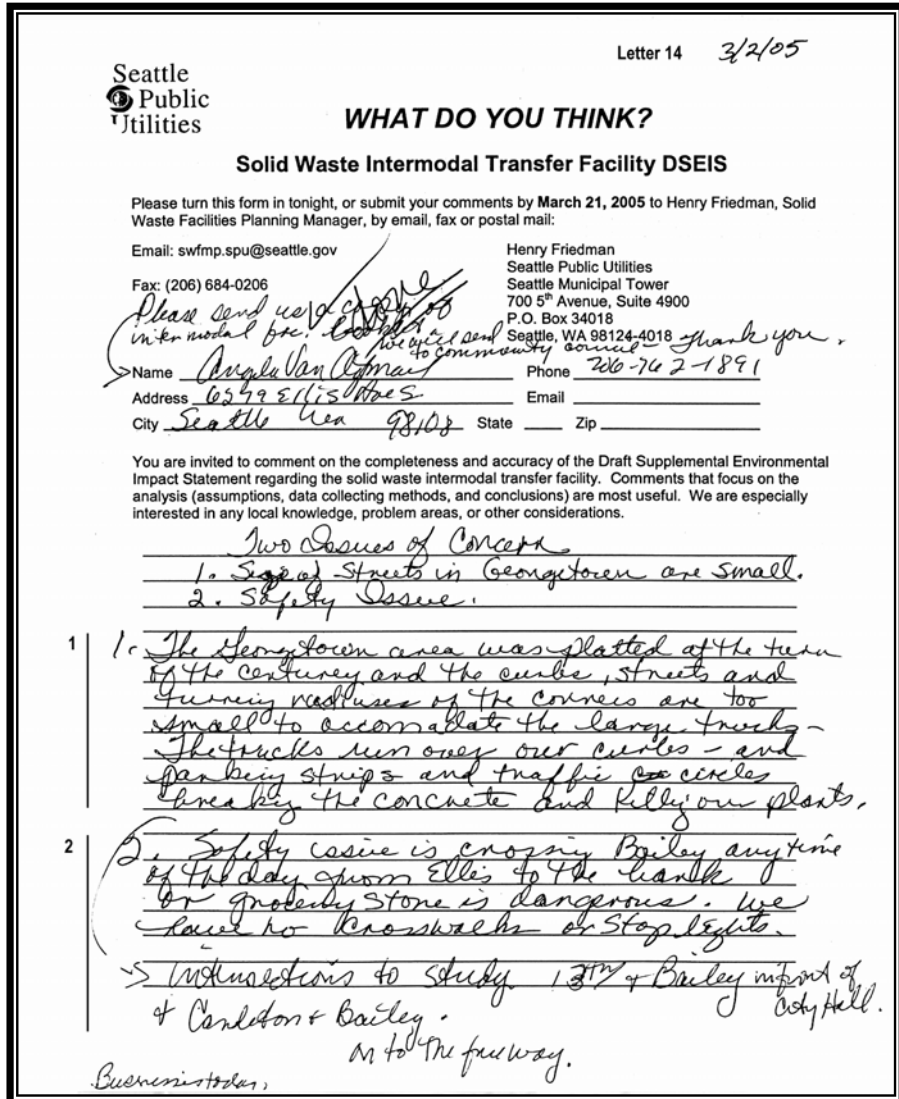 Letter 14 3/2/05
Seattle
Public
Utilities
WHAT DO YOU THINK?
Solid Waste Intermodal Transfer Facility DSEIS
Please turn this form in tonight, or submit your comments by March 21, 2005 to Henry Friedman, Solid
Waste Facilities Planning Manager, by email, fax or postal mail:
Email: swfmp.spu@seattle.gov
Fax: (206) 684-0206
Henry Friedman
Seattle Public Utilities
Seattle Municipal Tower
700 5th Avenue, Suite 4900
P.O. Box 34018
Seattle, WA 98124-4018
done
Please send us a copy of
intermodal fac. booklet
we will send
to community council - Thank you.
Name Angela Van
Phone 206-762-1891
Address 6579 Ellis Ave S
Email
City Seattle Wa 98108 State Zip
You are invited to comment on the completeness and accuracy of the Draft Supplemental Environmental
Impact Statement regarding the solid waste intermodal transfer facility. Comments that focus on the
analysis (assumptions, data collecting methods, and conclusions) are most useful. We are especially
interested in any local knowledge, problem areas, or other considerations.
Two Issues of Concern
1. Size of Streets in Georgetown are small.
2. Safety Issue.
1
1. The Georgetown area was platted at the turn
of the century and the curbs, streets and
turning radiuses of the corners are too
small to accomadate the large trucks -
The trucks run over our curbs - and
parking strips and traffic circles
breaking the concrete and killing our plants.
2
2. Safety issue is crossing Bailey anytime
of the day from Ellis to the bank
or grocery store is dangerous. We
have no crosswalks or Stop lights.
Intersections to study 13th + Bailey infront of
City Hall.
+ Carleton + Bailey.
on to the freeway.